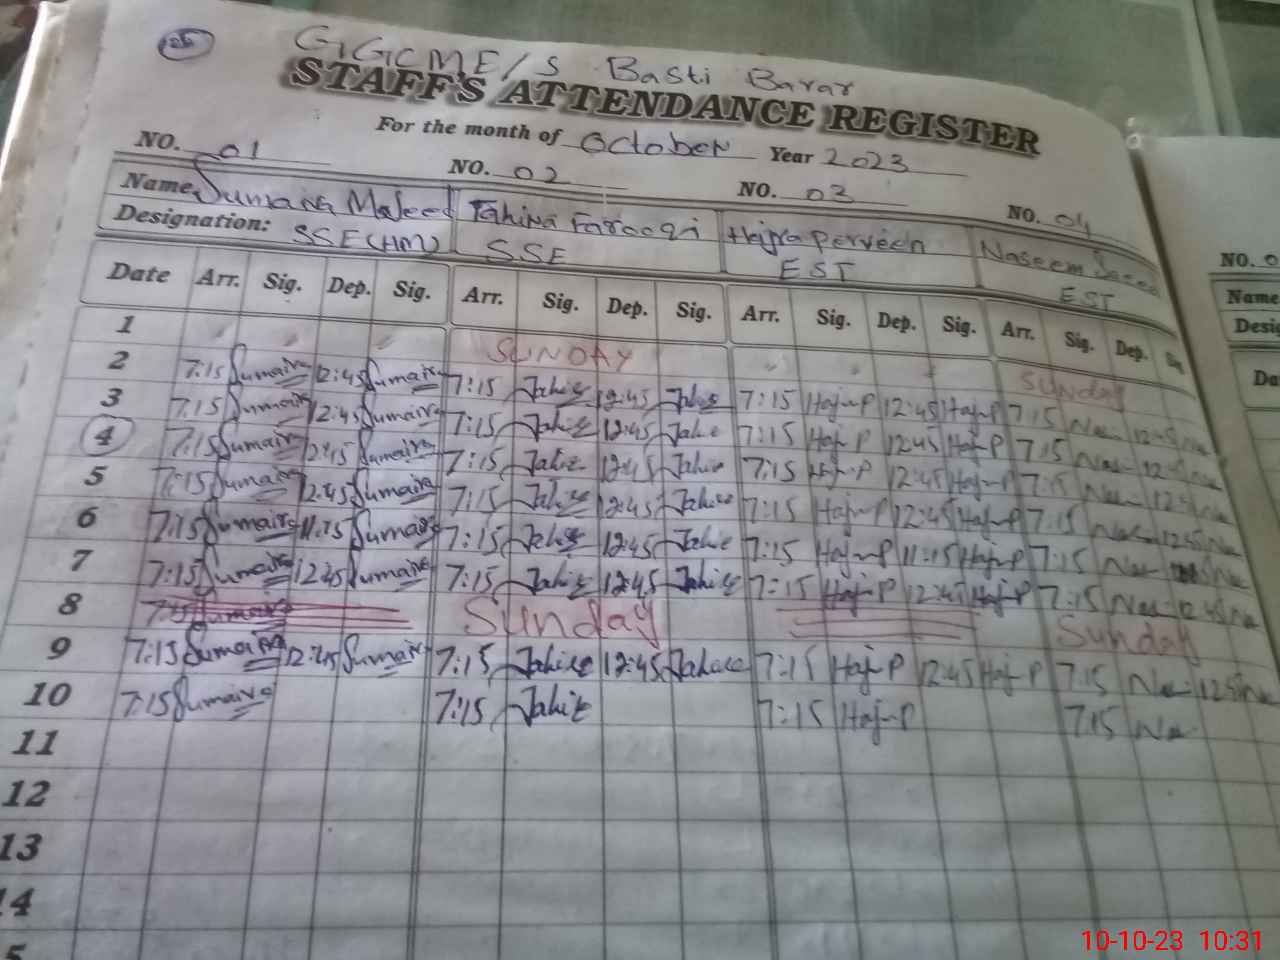 26
GGCME/S Basti Barar
STAFF'S ATTENDANCE REGISTER
For the month of October Year 2023
NO. 01 NO. 02 NO. 03 NO. 04
Name Sumaira Majeed Tahira Farooqi Hajra Perveen Naseem
Designation: SSE(HM) SSE EST EST
Date Arr. Sig. Dep. Sig. Arr. Sig. Dep. Sig. Arr. Sig. Dep. Sig. Arr. Sig. Dep. Sig
1 SUNDAY Sunday
2 7:15 Sumaira 12:45 Sumaira 7:15 Tahira 12:45 Tahira 7:15 Haj-P 12:45 Haj-P 7:15 Na 12:45 Na
3 7:15 Sumaira 12:45 Sumaira 7:15 Tahira 12:45 Tahira 7:15 Haj-P 12:45 Haj-P 7:15 Na 12:45 Na
4 7:15 Sumaira 12:45 Sumaira 7:15 Tahira 12:45 Tahira 7:15 Haj-P 12:45 Haj-P 7:15 Na 12:45 Na
5 7:15 Sumaira 12:45 Sumaira 7:15 Tahira 12:45 Tahira 7:15 Haj-P 12:45 Haj-P 7:15 Na 12:45 Na
6 7:15 Sumaira 11:15 Sumaira 7:15 Tahira 12:45 Tahira 7:15 Haj-P 11:15 Haj-P 7:15 Na Na
7 7:15 Sumaira 12:45 Sumaira 7:15 Tahira 12:45 Tahira 7:15 Haj-P 12:45 Haj-P 7:15 Na 12:45 Na
8 7:15 Sumaira Sunday Sunday
9 7:15 Sumaira 12:45 Sumaira 7:15 Tahira 12:45 Tahira 7:15 Haj-P 12:45 Haj-P 7:15 Na 12:45 Na
10 7:15 Sumaira 7:15 Tahira 7:15 Haj-P 7:15 Na
11
12
13
14
5
NO. 0
Name
Desig
Da
10-10-23 10:31